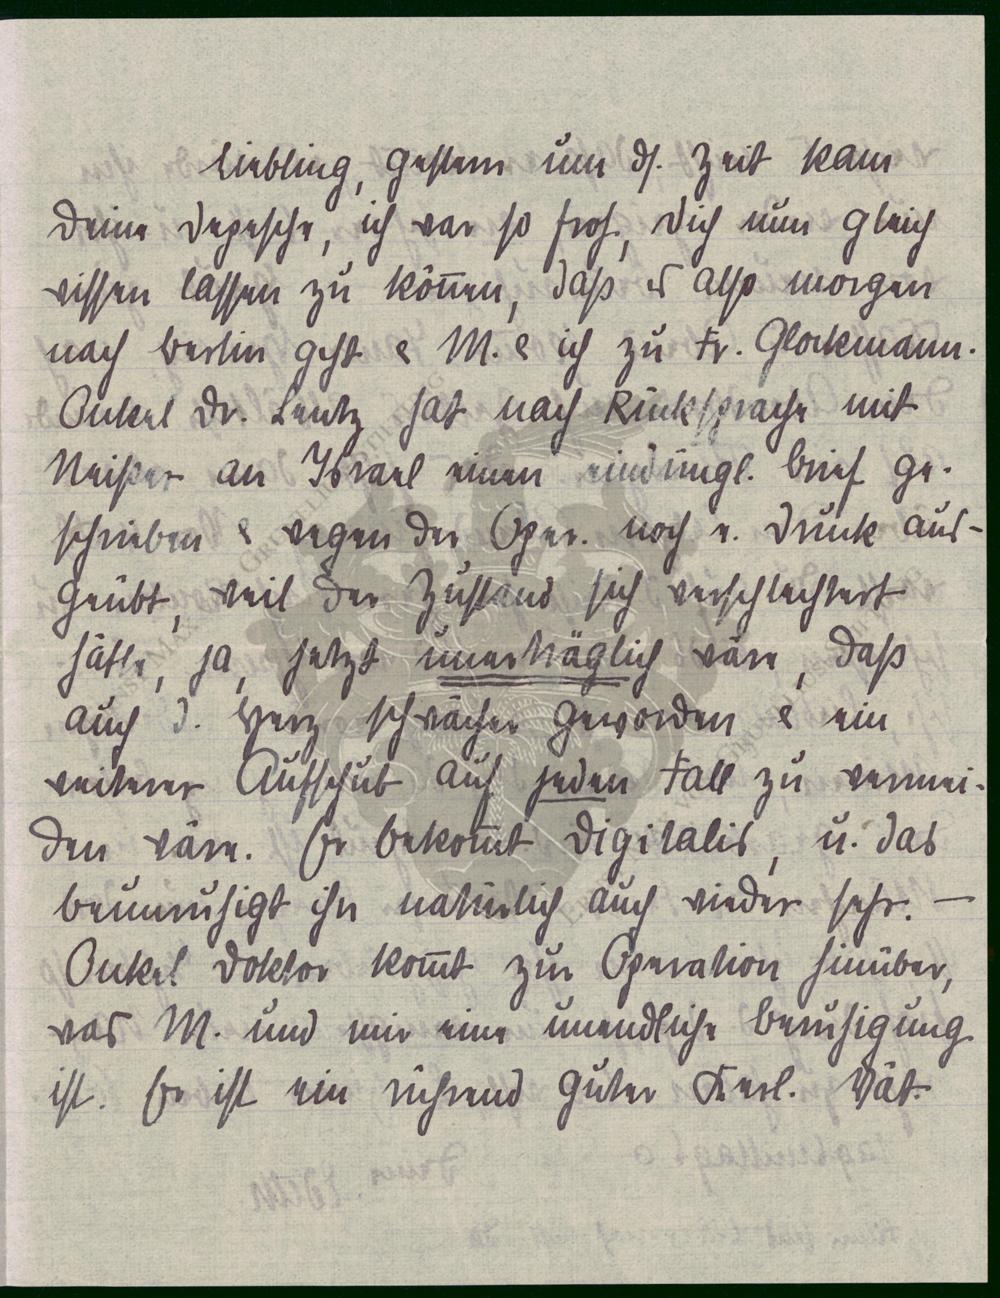 Liebling, gestern um ds. Zeit kam
Deine Depesche, ich war so froh, Dich nun gleich
wissen lassen zu kön̄en, daß es also morgen
nach Berlin geht & M. & ich zu Fr. Glockmann.
Onkel Dr. Lentz hat nach Rücksprache mit
Neißer an Israel einen eindringl. Brief ge-
schrieben & wegen der Oper. noch e. Druck aus-
geübt, weil der Zustand sich verschlechtert
hätte, ja, jetzt unerträglich wäre, daß
auch d. Herz schwächer geworden & ein
weiterer Aufschub auf jeden Fall zu vermei-
den wäre. Er bekom̄t Digitalis, u. das
beunruhigt ihn natürlich auch wieder sehr. —
Onkel Doktor kom̄t zur Operation hinüber,
was M. und mir eine unendliche Beruhigung
ist. Er ist ein rührend guter Kerl. Vat.